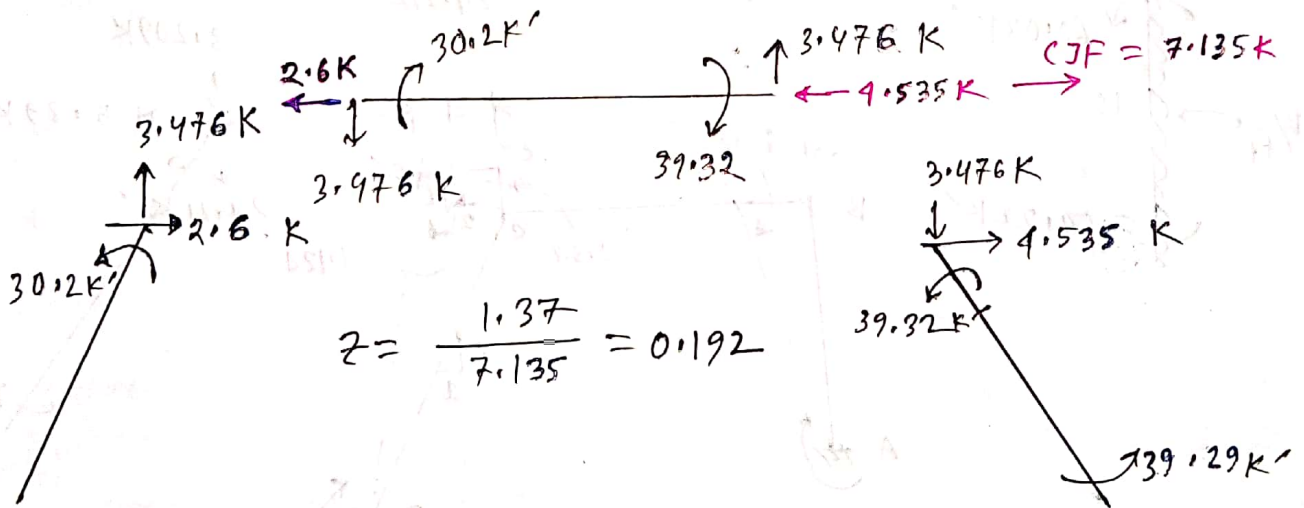 30.2K'
3.476 K
CJF = 7.135K
2.6K
4.535K
3.476 K
3.476 K
39.32
3.476K
2.6 K
4.535 K
30.2K'
39.32K'
Z = 1.37 / 7.135 = 0.192
39.29K'